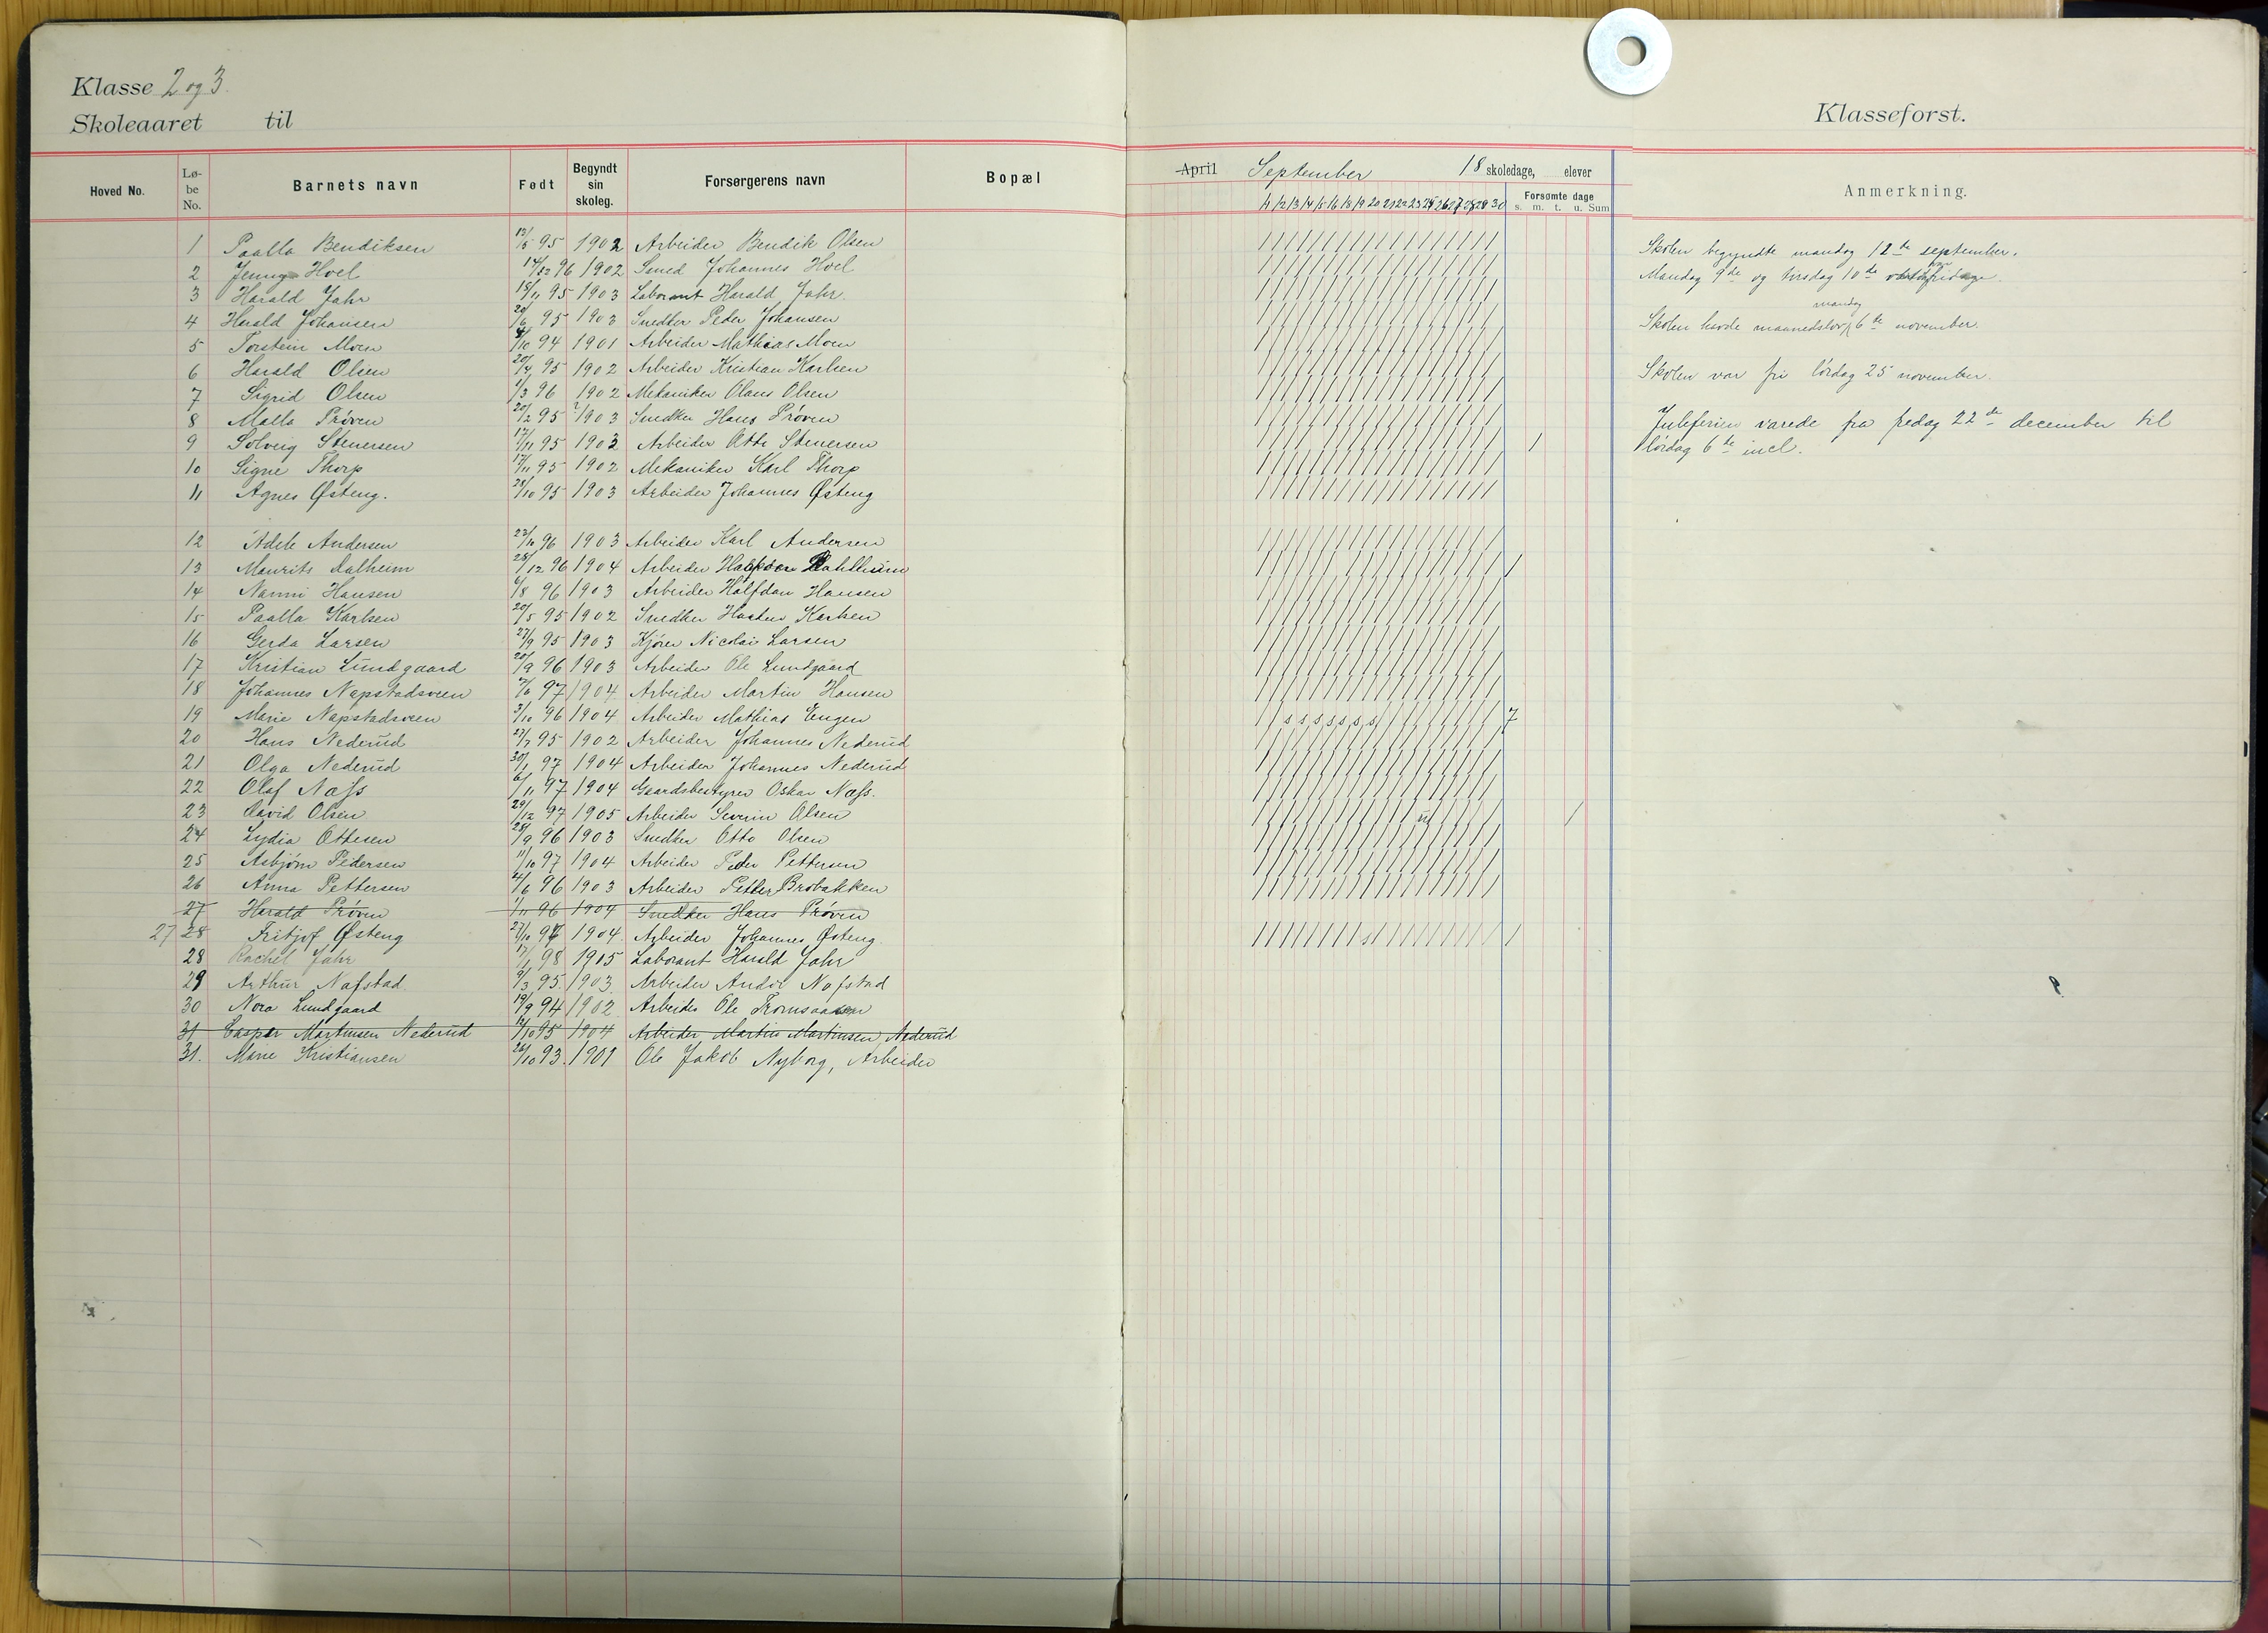 Klasse 2 og 3.
Skoleaaret til
Klasseforst.
Hoved No.
Lø-
be
No.
Barnets navn
Født
Begyndt
sin
skoleg.
Forsørgerens navn
Bopæl
April September 18 skoledage, elever
Forsømte dage
s. m. t. u. Sum
12 13 14 15 16 18 19 20 21 22 23 25 26 27 28 29 30
Anmerkning.
1 Paalla Bendiksen 95 1902 Arbeider Bendik Olsen
2 Jenny Hoel 96 1902 Smed Johannes Hoel
3 Harald Jahr 15/11 95 1903 Laborant Harald Jahr.
4 Harald Johansen 20/6 95 1903 Snedker Peder Johansen
5 Torstein Moen 94 1901 Arbeider Mathias Moen
6 Harald Olsen 20/4 95 1902 Arbeider Kristian Karlsen
7 Sigrid Olsen 1/3 96 1902 Mekaniker Olaus Olsen
8 Malla Prøven 20/2 95 1903 Snedker Hans Prøven
9 Solveig Stenersen 17/11 95 1902 Arbeider Otto Stenersen 1
10 Signe Thorp 17/11 95 1902 Mekaniker Karl Thorp
11 Agnes Østeng. 28/10 95 1903 Arbeider Johannes Østeng
12 Adele Andersen 22/10 96 1903 Arbeider Karl Andersen
13 Maurits Dalheim 28/12 96 1904 Arbeider 1
14 Nanni Hansen 6/8 96 1903 Arbeider Halfdan Hansen
15 Paalla Karlsen 20/5 95 1902 Snedker Karlsen
16 Gerda Larsen 27/9 95 1903 Kjører Nicolai Larsen
17 Kristian Lundgaard 20/9 96 1903 Arbeider Ole Lundgaard
18 Johannes Napstadsveen 7/6 97 1904 Arbeider Martin Hansen
19 Marie Napstadsveen 3/10 96 1904 Arbeider Mathias Engen s s s s s s s 7
20 Hans Nederud 27/7 95 1902 Arbeider Johannes Nederud
21 Olga Nederud 30/1 97 1904 Arbeider Johannes Nederud
22 Olaf Næss 6/11 97 1904 Gaardsbestyrer Oskar Næss.
23 David Olsen 29/12 97 1905 Arbeider Severin Olsen u 1
24 Lydia Ottesen 28/9 96 1903 Snedker Otto Olsen
25 Asbjørn Pedersen 11/10 97 1904 Arbeider Peder Pettersen
26 Anna Pettersen 4/6 96 1903 Arbeider Petter Brobakken
27 Harald Prøven 1/11 96 1904 Snedker Hans Prøven
27 28 Fritjof Østeng 27/10 96 1904. Arbeider Johannes Østeng. s 1
28 Rachel Jahr 17/1 98 1905 Laborant Harald Jahr
29 Arthur Nafstad 9/3 95. 1903. Arbeider Andor Nafstad
30 Nora Lundgaard 19/9 94 1902. Arbeider Ole
31 Casper Martinsen Nederud 12/10 95 1904 Arbeider Martin Martinsen Nederud
31. Marie Kristiansen 26/10 93. 1901 Ole Jakob Nyborg, Arbeider
Skolen begyndte mandag 12te september.
Mandag 9de og tirsdag 10de fridage.
mandag
Skolen havde maanedslov 6te november.
Skolen var fri lördag 25 november.
Juleferien varede fra fredag 22de december til
lördag 6te incl.